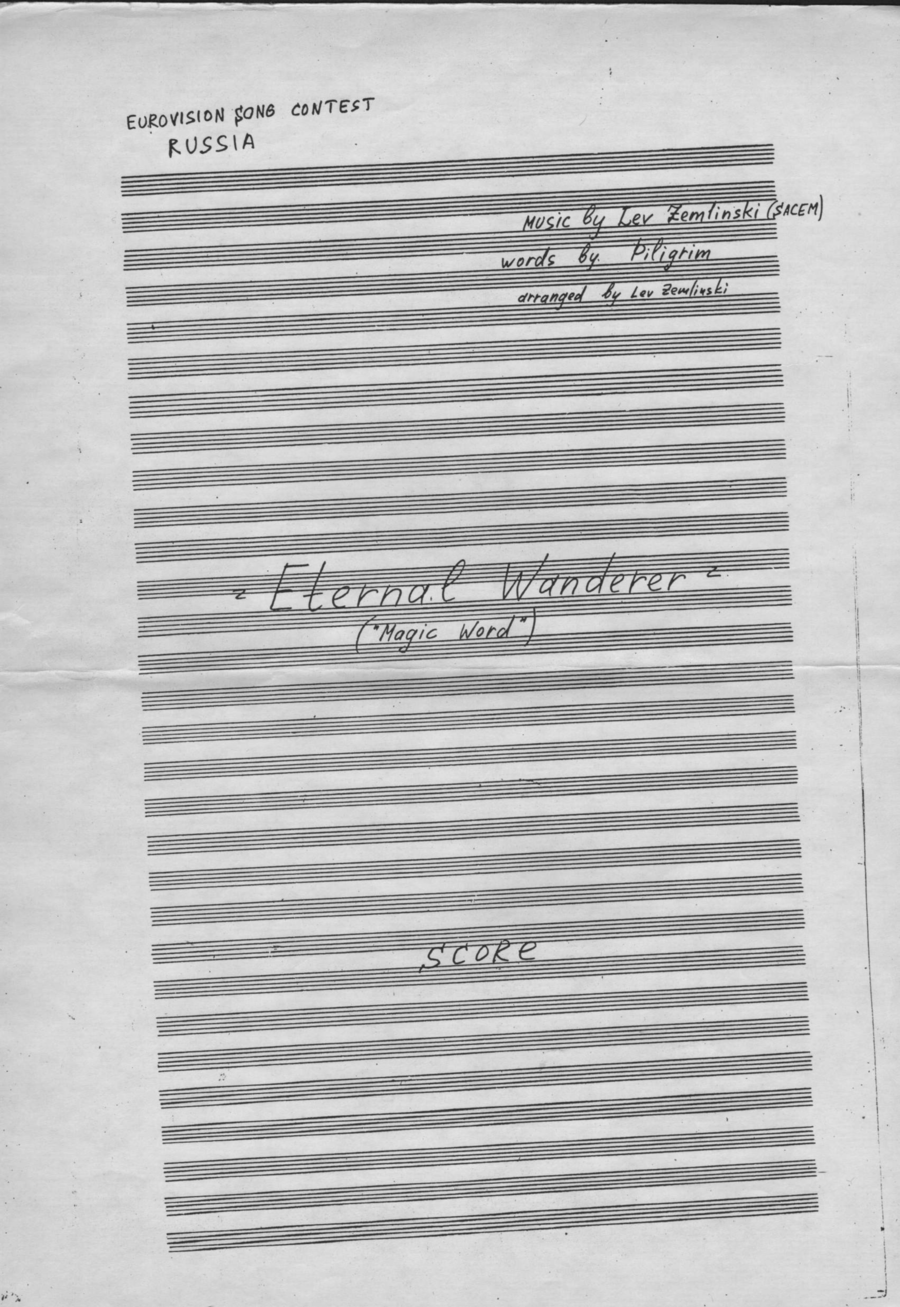 EUROVISION SONG CONTEST
RUSSIA
Music by Lev Zemlinski (SACEM)
words by Piligrim
arranged by Lev Zemlinski
- Eternal Wanderer -
("Magic Word")
SCORE